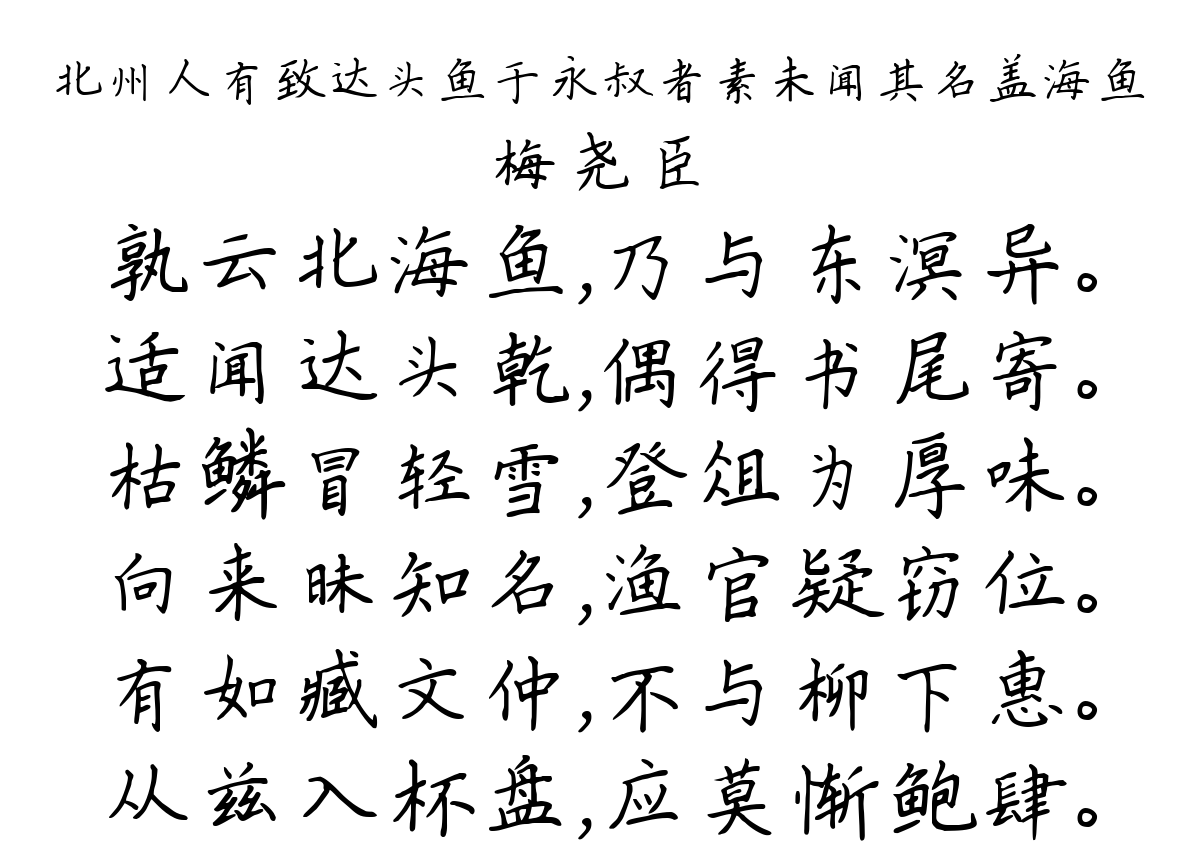 北州人有致达头鱼于永叔者素未闻其名盖海鱼
梅尧臣
孰云北海鱼,乃与东溟异。
适闻达头乾,偶得书尾寄。
枯鳞冒轻雪,登俎为厚味。
向来昧知名,渔官疑窃位。
有如臧文仲,不与柳下惠。
从兹入杯盘,应莫惭鲍肆。